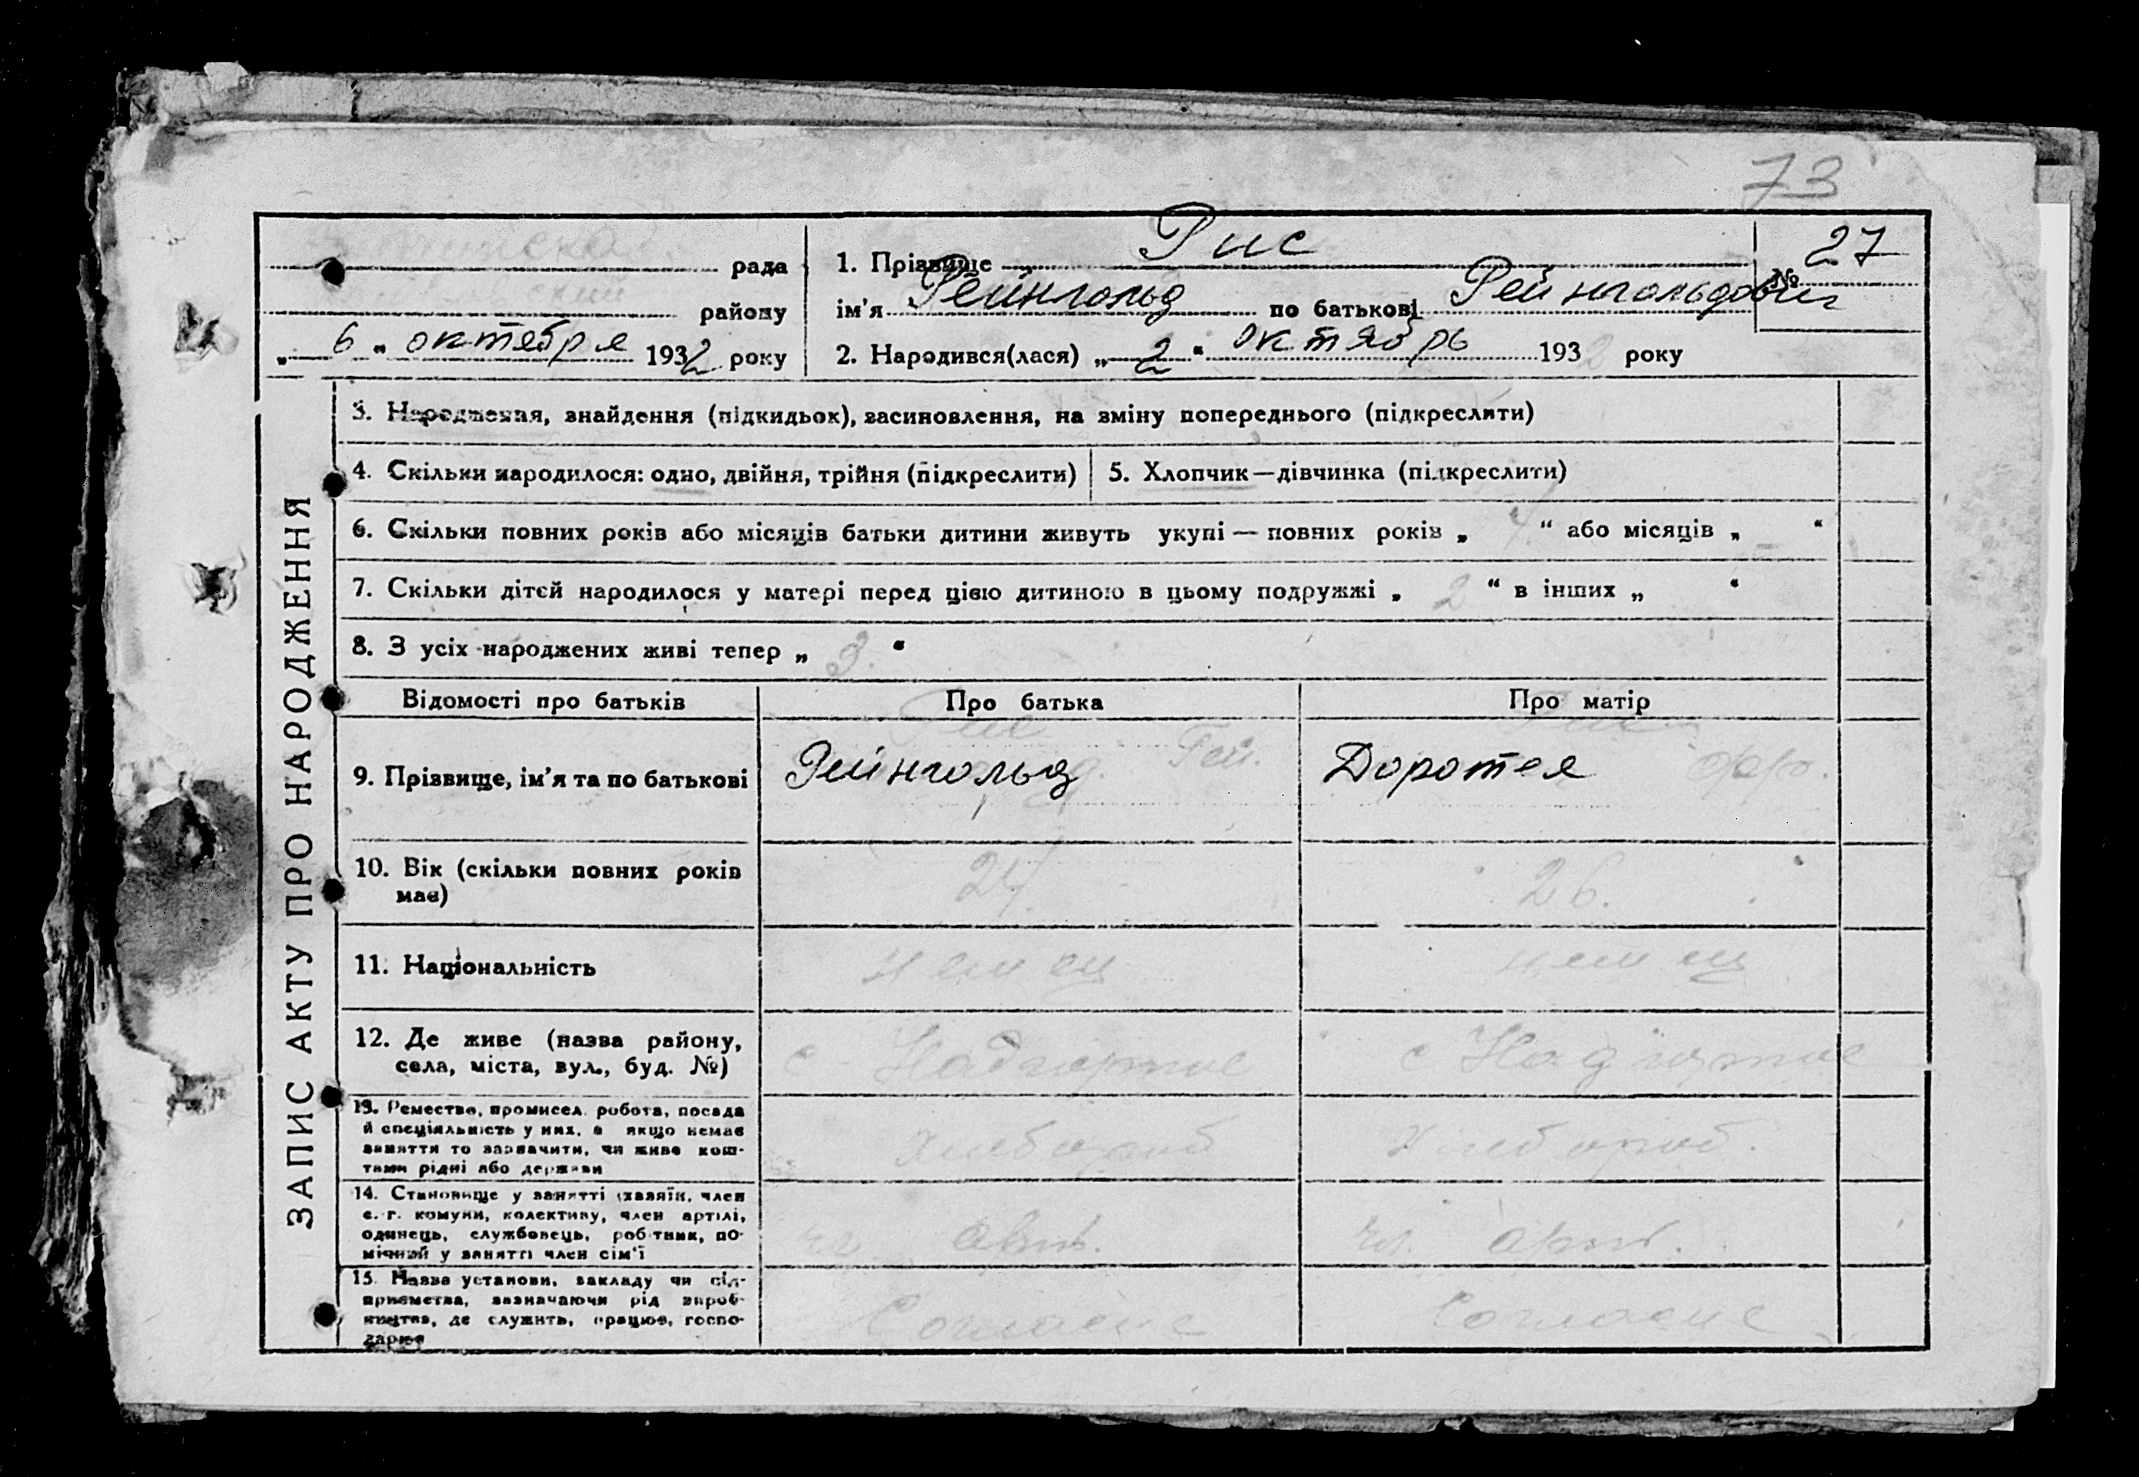 73
рада
району
„ 6 “ октебря 1932 року
1. Прізвище Рис
№ 27
ім'я Рейнгольд по батькові Рейнгольдович
2. Народився(лася) „ 2 “ октябрь 1932 року
ЗАПИС АКТУ ПРО НАРОДЖЕННЯ
3. Народження, знайдення (підкидьок), засиновлення, на зміну попереднього (підкреслити)
4. Скільки народилося: одно, двійня, трійня (підкреслити)
5. Хлопчик—дівчинка (підкреслити)
6. Скільки повних років або місяців батьки дитини живуть укупі — повних років „ 4. “ або місяців „ – “
7. Скільки дітей народилося у матері перед цією дитиною в цьому подружжі „ 2 “ в інших „ “
8. З усіх народжених живі тепер „ 3. “
Відомості про батьків
Про батька
Про матір
9. Прізвище, ім'я та по батькові
Рис
Рейнгольд Рей.
Рис
Доротея
10. Вік (скільки повних років
має)
24.
26.
11. Національність
немец
немец
12. Де живе (назва району,
села, міста, вул., буд. №)
с
с
13. Ремество, промисел, робота, посада
й спеціяльність у них, а якщо немає
заняття то зазначити, чи живе кош-
тами рідні або держави
Хлебороб
Хлебороб.
14. Становище у занятті (хазяїн, член
с.-г. комуни, колективу, член артілі,
одинець, службовець, робітник, по-
мічний у занятті член сім'ї
чл. арт.
чл. арт.
15. Назва установи, закладу чи під-
приємства, зазначаючи рід вироб-
ництва, де служить, працює, госпо-
дарює
Согласие
Согласие